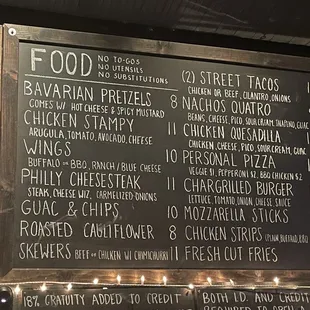 FOOD
NO TO-GOS
NO UTENSILS
NO SUBSTITUTIONS
BAVARIAN PRETZELS 8
COMES W/ HOT CHEESE & SPICY MUSTARD
CHICKEN STAMPY 11
ARUGULA, TOMATO, AVOCADO, CHEESE
WINGS 10
BUFFALO OR BBQ, RANCH / BLUE CHEESE
PHILLY CHEESESTEAK 11
STEAK, CHEEZ WIZ, CARMELIZED ONIONS
GUAC & CHIPS 10
ROASTED CAULIFLOWER 8
SKEWERS BEEF OR CHICKEN W/ CHIMICHURRI 11
(2) STREET TACOS
CHICKEN OR BEEF, CILANTRO, ONIONS
NACHOS QUATRO
BEANS, CHEESE, PICO, SOUR CREAM, JALAPENO, GUAC
CHICKEN QUESADILLA
CHICKEN, PICO, SOUR CREAM, GUAC
PERSONAL PIZZA
VEGGIE $1, PEPPERONI $2, BBQ CHICKEN $2
CHARGRILLED BURGER
LETTUCE, TOMATO, ONION, CHEESE, SAUCE
MOZZARELLA STICKS
CHICKEN STRIPS (PLAIN, BUFFALO, BBQ
FRESH CUT FRIES
18% GRATUITY ADDED TO CREDIT
BOTH I.D. AND CREDIT
REQUIRED TO OPEN A